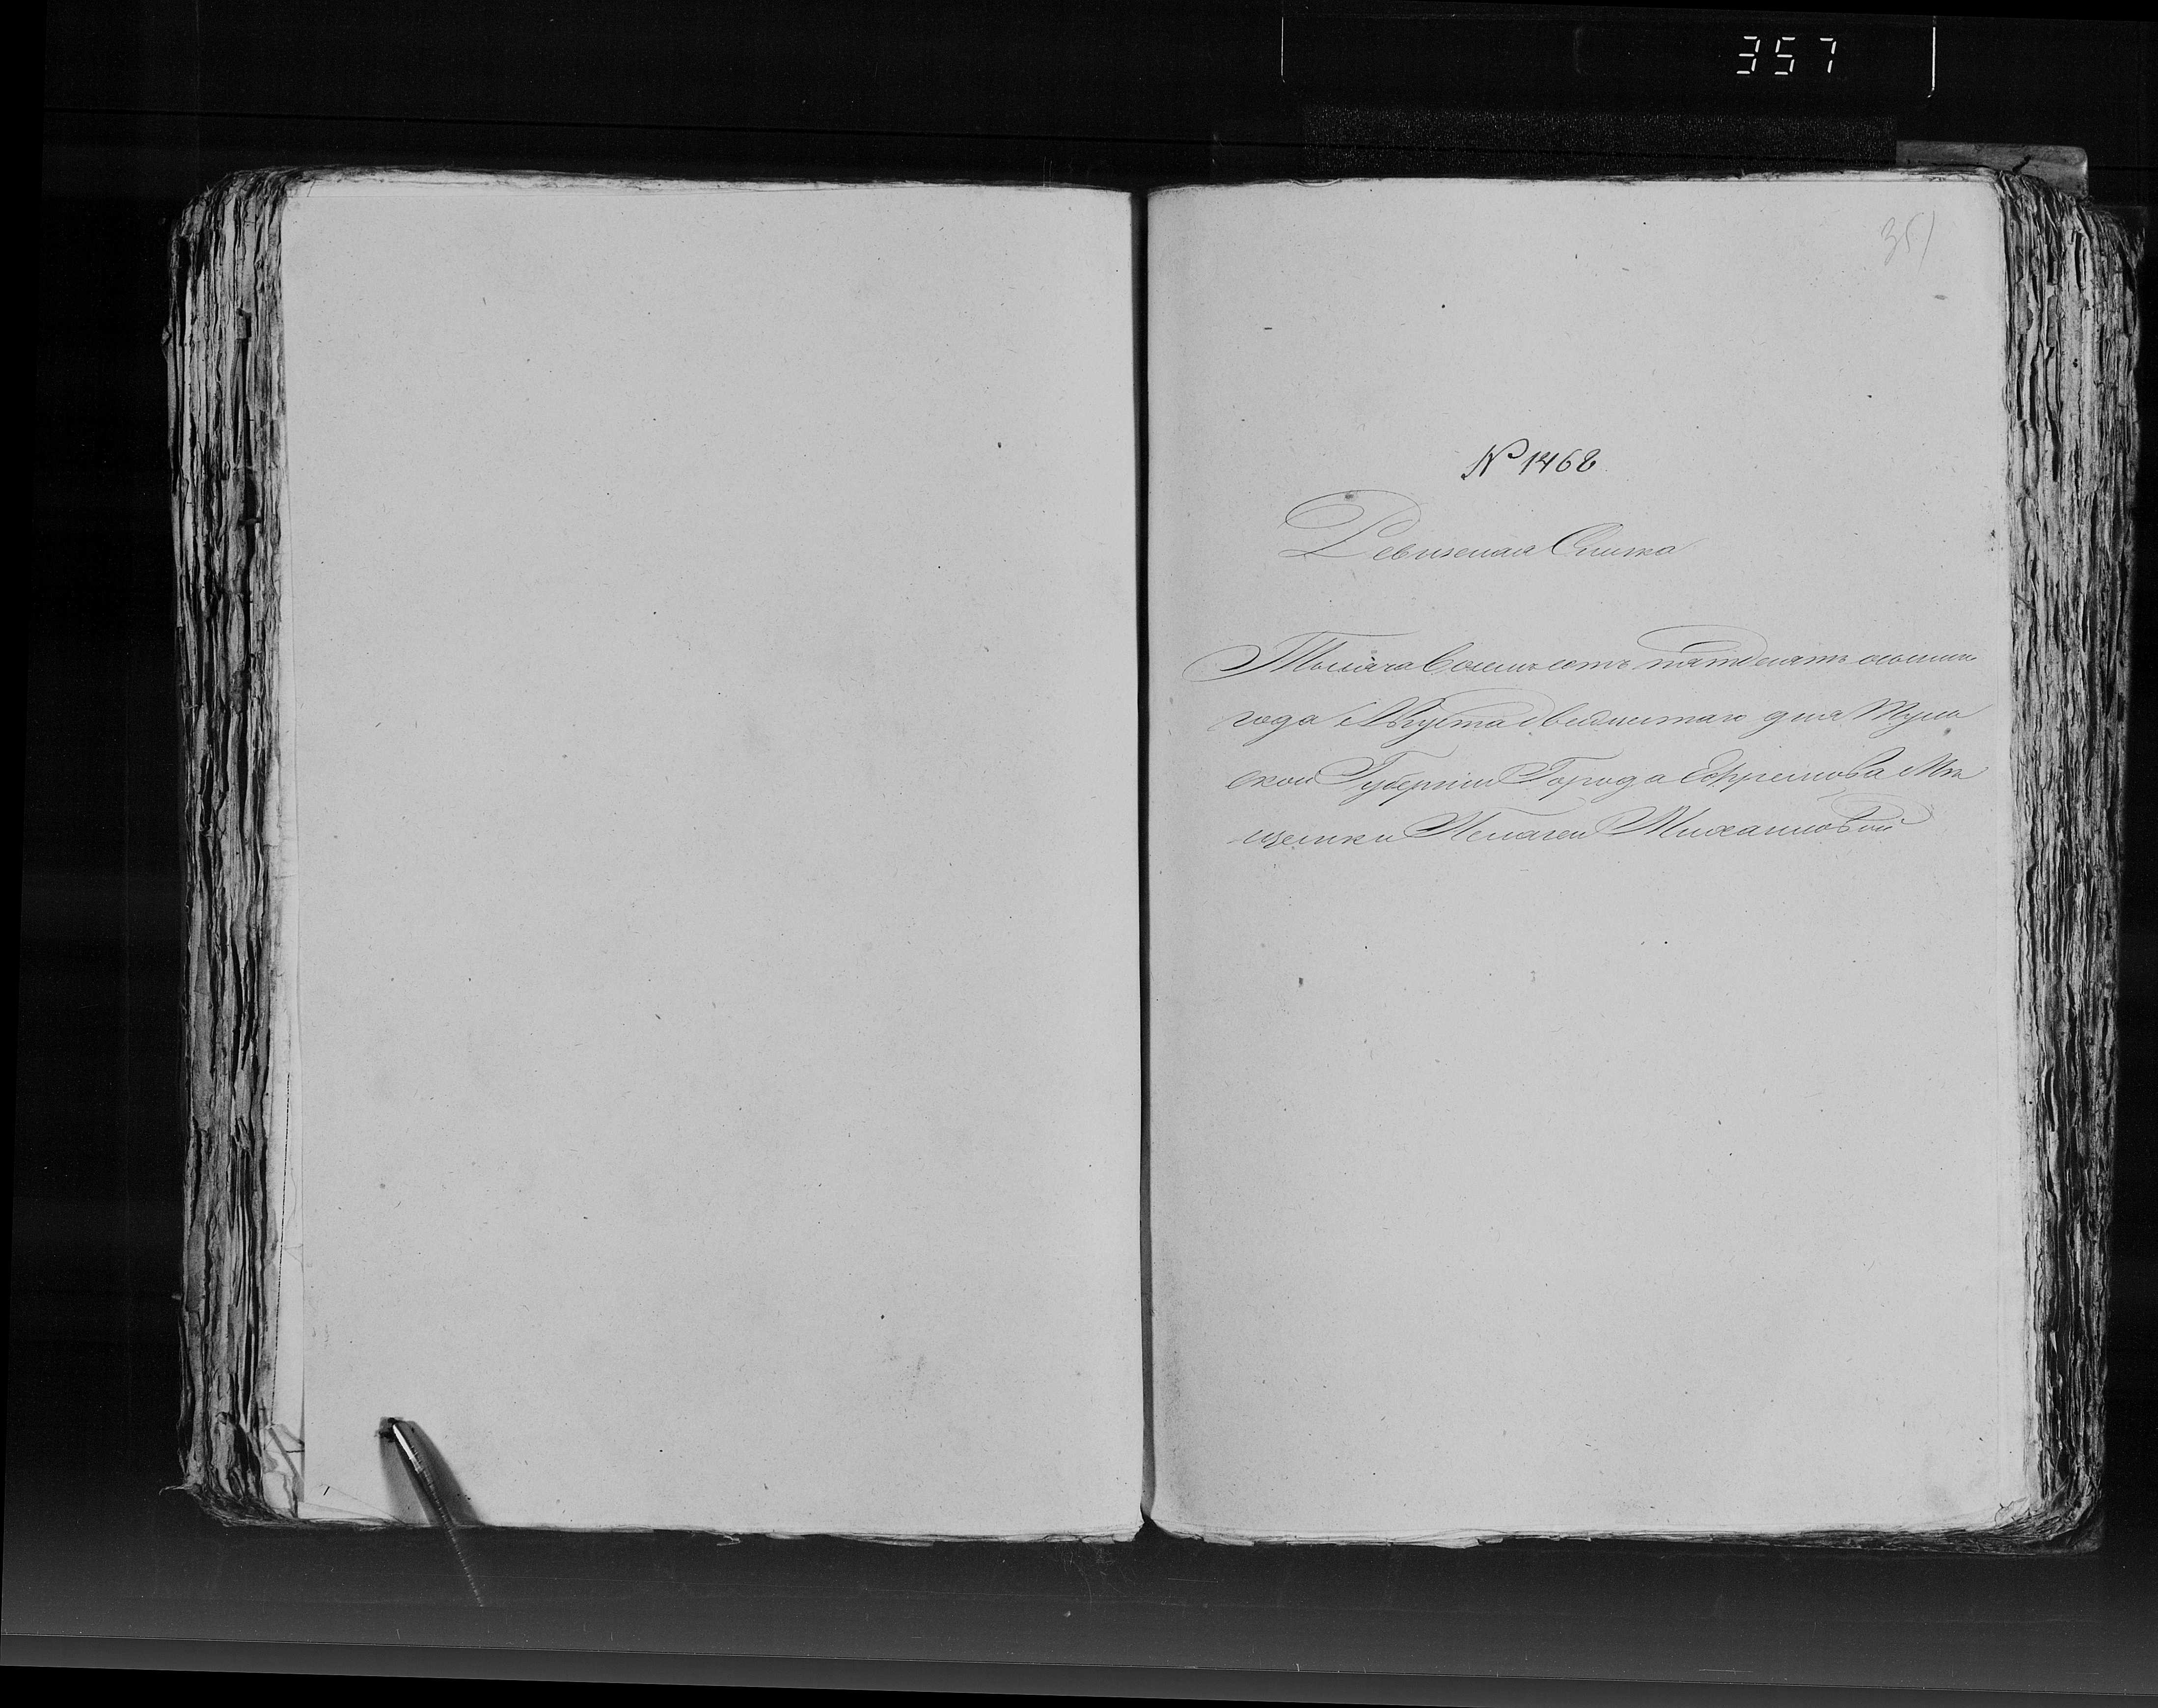 357
351
№ 1468
Ревизская Сказка
Тысяча восемьсотъ пятдесятъ осьмаго
года Августа двадцатаго дня Туль
ской Губерніи Города Ефремова Мѣ
щенки Пелагеи Михайловой